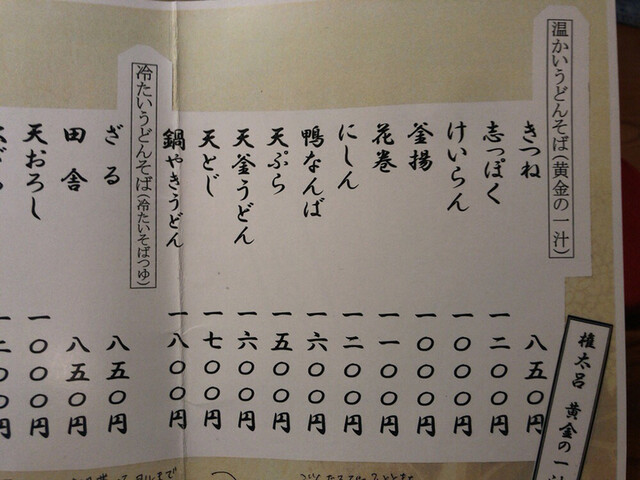 温かいうどんそば(黄金の一汁)
きつね 八五〇円
志っぽく 一二〇〇円
けいらん 一〇〇〇円
釜揚 一〇〇〇円
花巻 一一〇〇円
にしん 一二〇〇円
鴨なんば 一六〇〇円
天ぷら 一五〇〇円
天釜うどん 一六〇〇円
天とじ 一七〇〇円
鍋やきうどん 一八〇〇円
冷たいうどんそば(冷たいそばつゆ)
ざる 八五〇円
田舎 八五〇円
天おろし 一〇〇〇円
一二〇〇円
権太呂 黄金の一汁